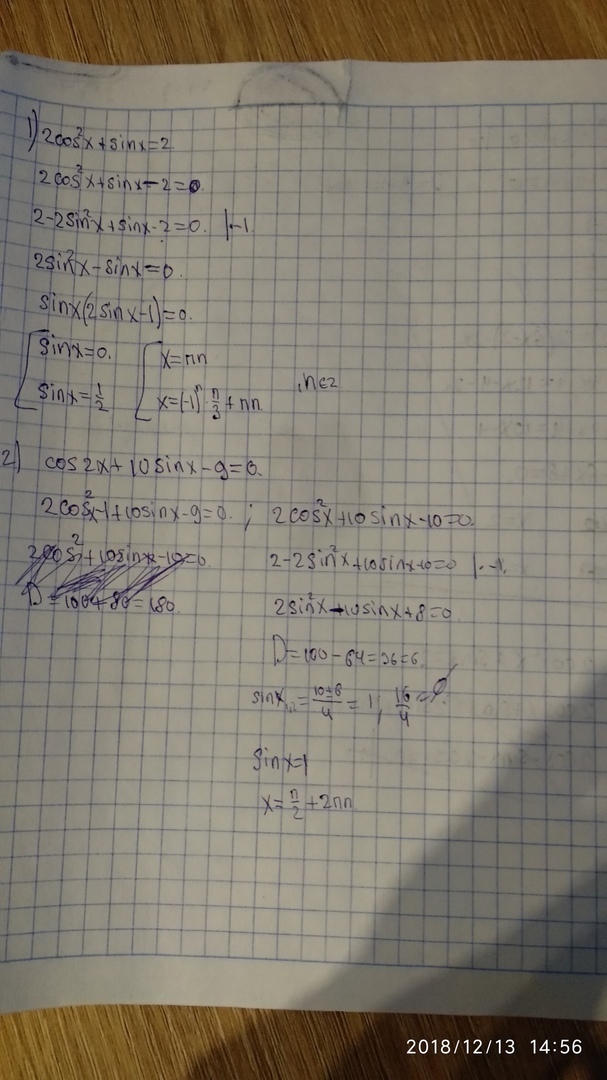 1) 2cos²x+sinx=2
2cos²x+sinx-2=0.
2-2sin²x+sinx-2=0. |·-1
2sin²x-sinx=0.
sinx(2sinx-1)=0.
[sinx=0. [x=πn
[sinx=1/2 [x=(-1)ⁿ·π/3+πn ,n∈z
2) cos2x+10sinx-9=0.
2cos²x-1+10sinx-9=0. ; 2cos²x+10sinx-10=0.
2cos²+10sinx-10=0. 2-2sin²x+10sinx-10=0 |·-1.
D=100+80=180. 2sin²x-10sinx+8=0
D=100-64=36=6.
sinx₁,₂=10±6/4=1; 16/4=∅.
sinx=1
x=π/2+2πn
2018/12/13 14:56